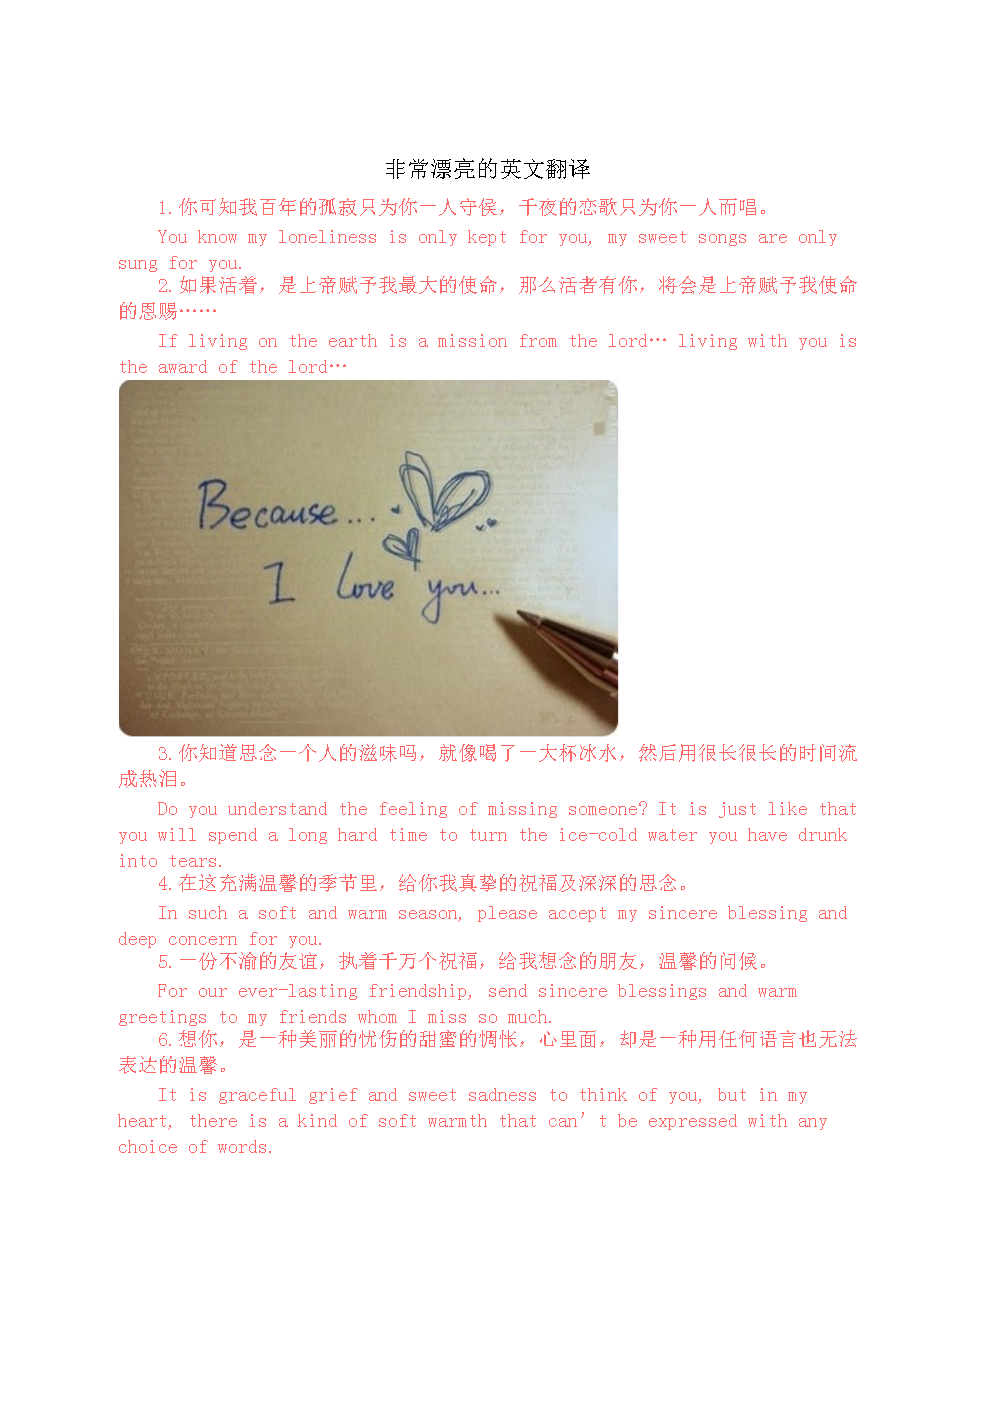 非常漂亮的英文翻译
1.你可知我百年的孤寂只为你一人守侯，千夜的恋歌只为你一人而唱。
You know my loneliness is only kept for you, my sweet songs are only
sung for you.
2.如果活着，是上帝赋予我最大的使命，那么活者有你，将会是上帝赋予我使命
的恩赐……
If living on the earth is a mission from the lord… living with you is
the award of the lord…
Because...
I love you...
3.你知道思念一个人的滋味吗，就像喝了一大杯冰水，然后用很长很长的时间流
成热泪。
Do you understand the feeling of missing someone? It is just like that
you will spend a long hard time to turn the ice-cold water you have drunk
into tears.
4.在这充满温馨的季节里，给你我真挚的祝福及深深的思念。
In such a soft and warm season, please accept my sincere blessing and
deep concern for you.
5.一份不渝的友谊，执着千万个祝福，给我想念的朋友，温馨的问候。
For our ever-lasting friendship, send sincere blessings and warm
greetings to my friends whom I miss so much.
6.想你，是一种美丽的忧伤的甜蜜的惆怅，心里面，却是一种用任何语言也无法
表达的温馨。
It is graceful grief and sweet sadness to think of you, but in my
heart, there is a kind of soft warmth that can’t be expressed with any
choice of words.